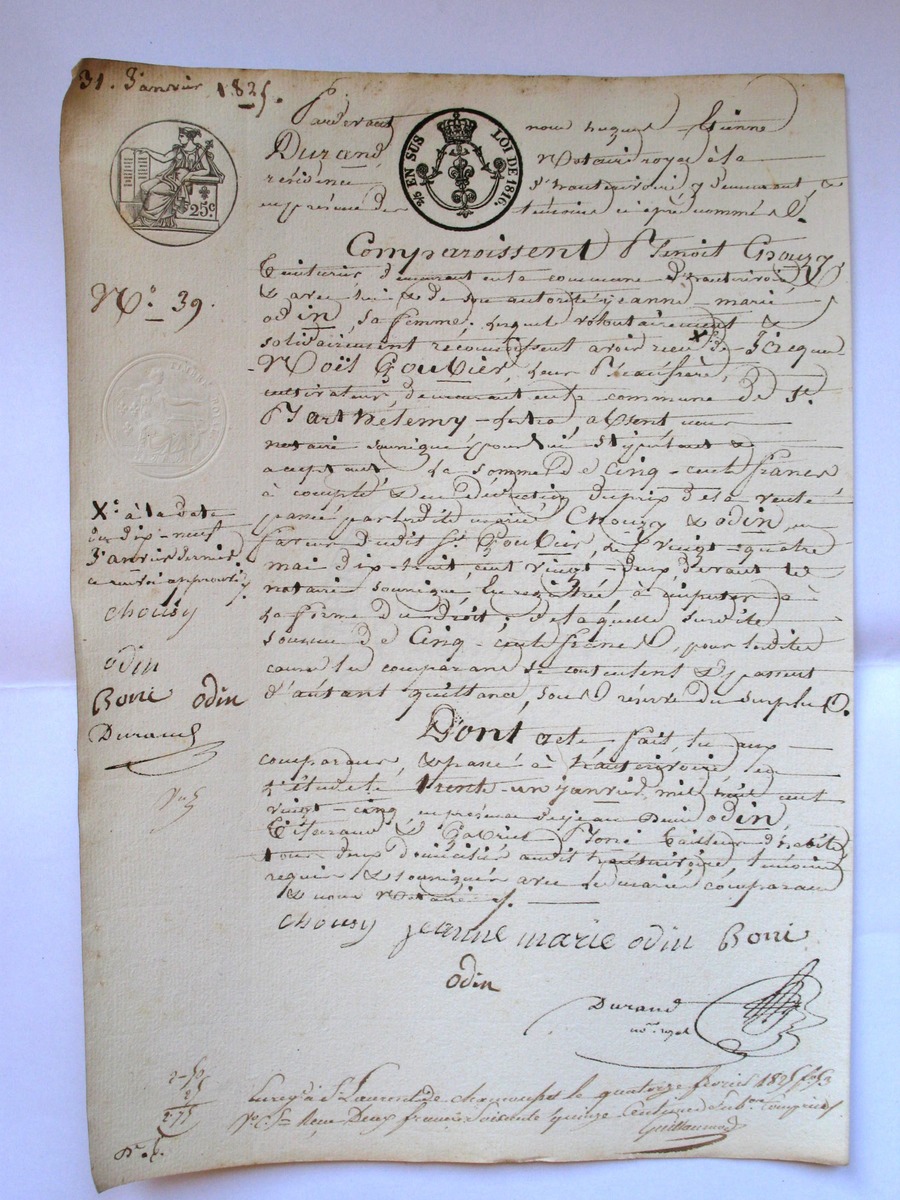 31. Janvier 1825.
Pardevant nous hugues Etienne
Durand Notaire royal à la
résidence d'hauterivoire y demeurant, &
en présence des témoins ci après nommés
2/5 EN SUS LOI DE 1816.
25c
Comparoissent Benoit Chouzy
demeurant en la commune d'hauterivoire
& avec lui & de son autorité jeanne-marie
odin, sa femme, lesquels volontairement &
solidairement reconnoissent avoir reçu X de Jacques
Noël Goubier, leur Beaufrère,
cultivateur, demeurant en la commune de St.
Barthélemy-lestra, absent nous
notaire soussigné pour lui stipulant &
acceptant la somme de Cinq-cents francs
à compte & en déduction du prix de la vente
passée par lesdits mariés Chouzy & odin, en
faveur dudit Sr. Goubier, le vingt-quatre
mai dix-huit cent vingt-deux devant le
notaire soussigné, Enregistrée, à imputer à
la forme du droit; de laquelle susdite
somme de Cinq-cents francs, pour ladite
cause les comparans se contentent & passent
d'autant quittance, sous réserve du surplus.
Dont acte fait, lu aux
comparans, & passé à hauterivoire, en
l'étude le trente-un janvier mil huit cent
vingt-cinq, en présence de odin,
Tisserand & Gabriel Boni tailleur d'habits
tous deux domiciliés audit hauterivoire, témoins
requis & soussignés avec les mariés comparans
& nous Notaire.
chousy jeanne marie odin Boni
odin
Durand
nore. royal
No. 39.
X. à la date
du dix-neuf
Janvier dernier
ce renvoi approuvé
chousy
odin
Boni odin
Durand
2-50
25
2.75
Enregé à St Laurent de chamousset le quatorze février 1825 fo 53
Vo Cse Reçu Deux francs Soixante quinze Centimes Subvon Comprise
Guillaumond